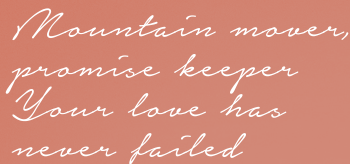 Mountain mover,
promise keeper
Your love has
never failed